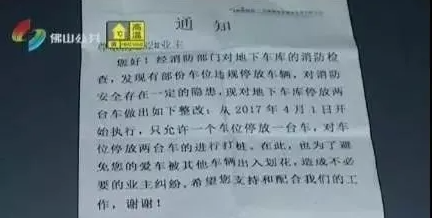 佛山公共
高温
℃
通知
业主
您好！经消防部门对地下车库的消防检
查，发现有部份车位违规停放车辆，对消防
安全存在一定的隐患，现对地下车库停放两
台车做出如下整改：从2017年4月1日开
始执行，只允许一个车位停放一台车，对车
位停放两台车的进行打桩。在此，也为了避
免您的爱车被其他车辆出入划花，造成不必
要的业主纠纷。希望您支持和配合我们的工
作，谢谢！